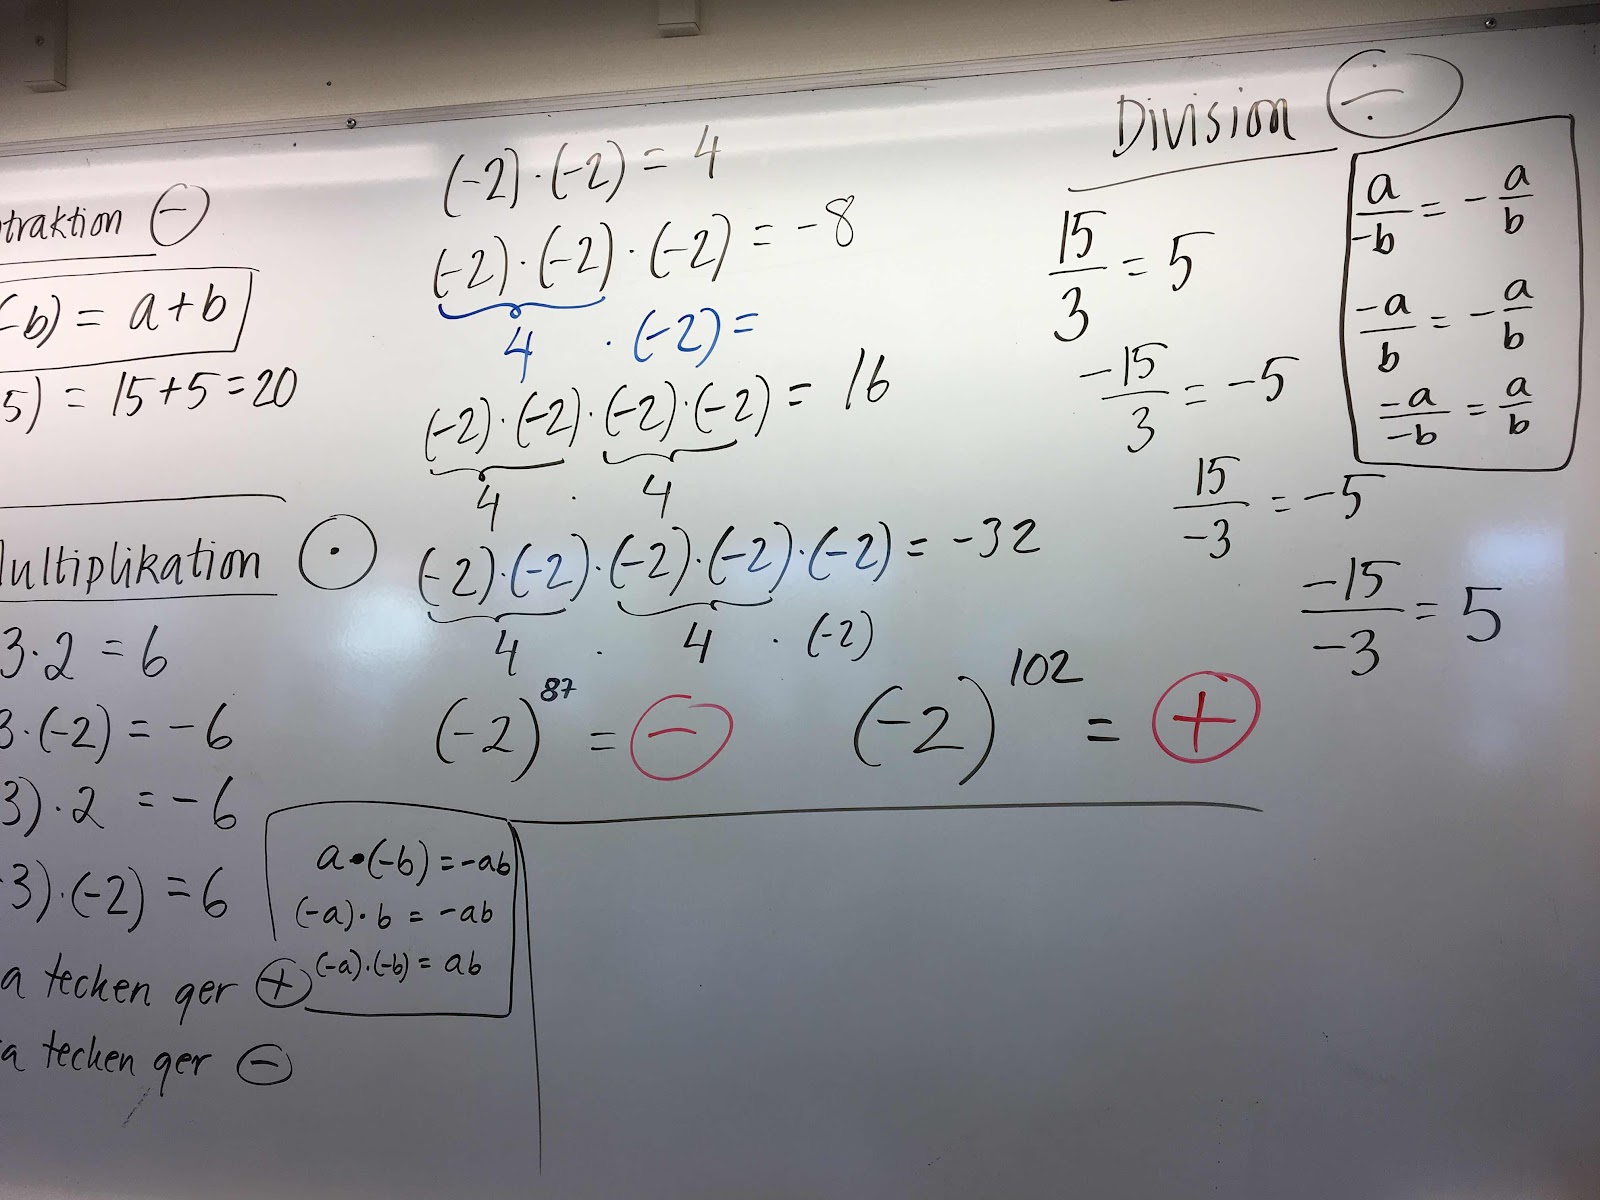 traktion ⊖
-b) = a+b
5) = 15+5=20
Multiplikation ⊙
3·2 = 6
3·(-2) = -6
3)·2 = -6
-3)·(-2) = 6
a tecken ger ⊕
a tecken ger ⊖
a•(-b) = -ab
(-a)·b = -ab
(-a)·(-b) = ab
(-2)·(-2) = 4
(-2)·(-2)·(-2) = -8
4 · (-2) =
(-2)·(-2)·(-2)·(-2) = 16
4 · 4
(-2)·(-2)·(-2)·(-2)·(-2) = -32
4 · 4 · (-2)
(-2)^87 = ⊖ (-2)^102 = ⊕
Division ÷
15/3 = 5
-15/3 = -5
15/-3 = -5
-15/-3 = 5
a/-b = -a/b
-a/b = -a/b
-a/-b = a/b